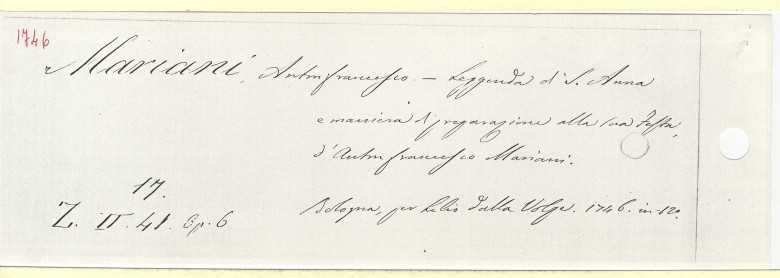 1746
Mariani, Antonfrancesco. — Leggenda di S. Anna
e maniera di preparazione alla sua Festa,
d'Antonfrancesco Mariani.
17.
Z. II. 41. Op. 6
Bologna, per Lelio dalla Volpe. 1746. in-12º